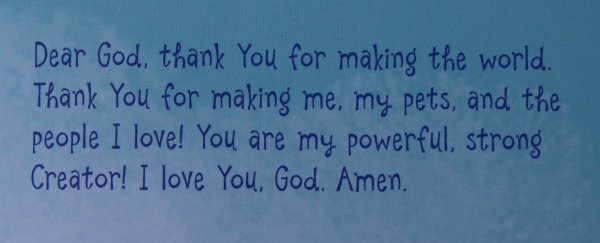 Dear God, thank You for making the world.
Thank You for making me, my pets, and the
people I love! You are my powerful, strong
Creator! I love You, God. Amen.